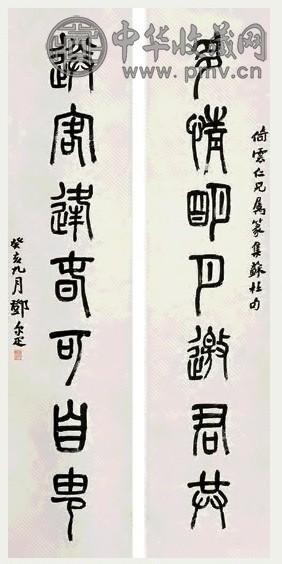 中华收藏网
www.pmv.cn
倚雲仁兄属篆集蘇杜句
多情明月邀君共
送客逢春可自由
癸亥九月鄧尔疋